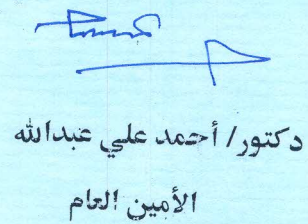 دكتور/ أحمد علي عبدالله
الأمين العام